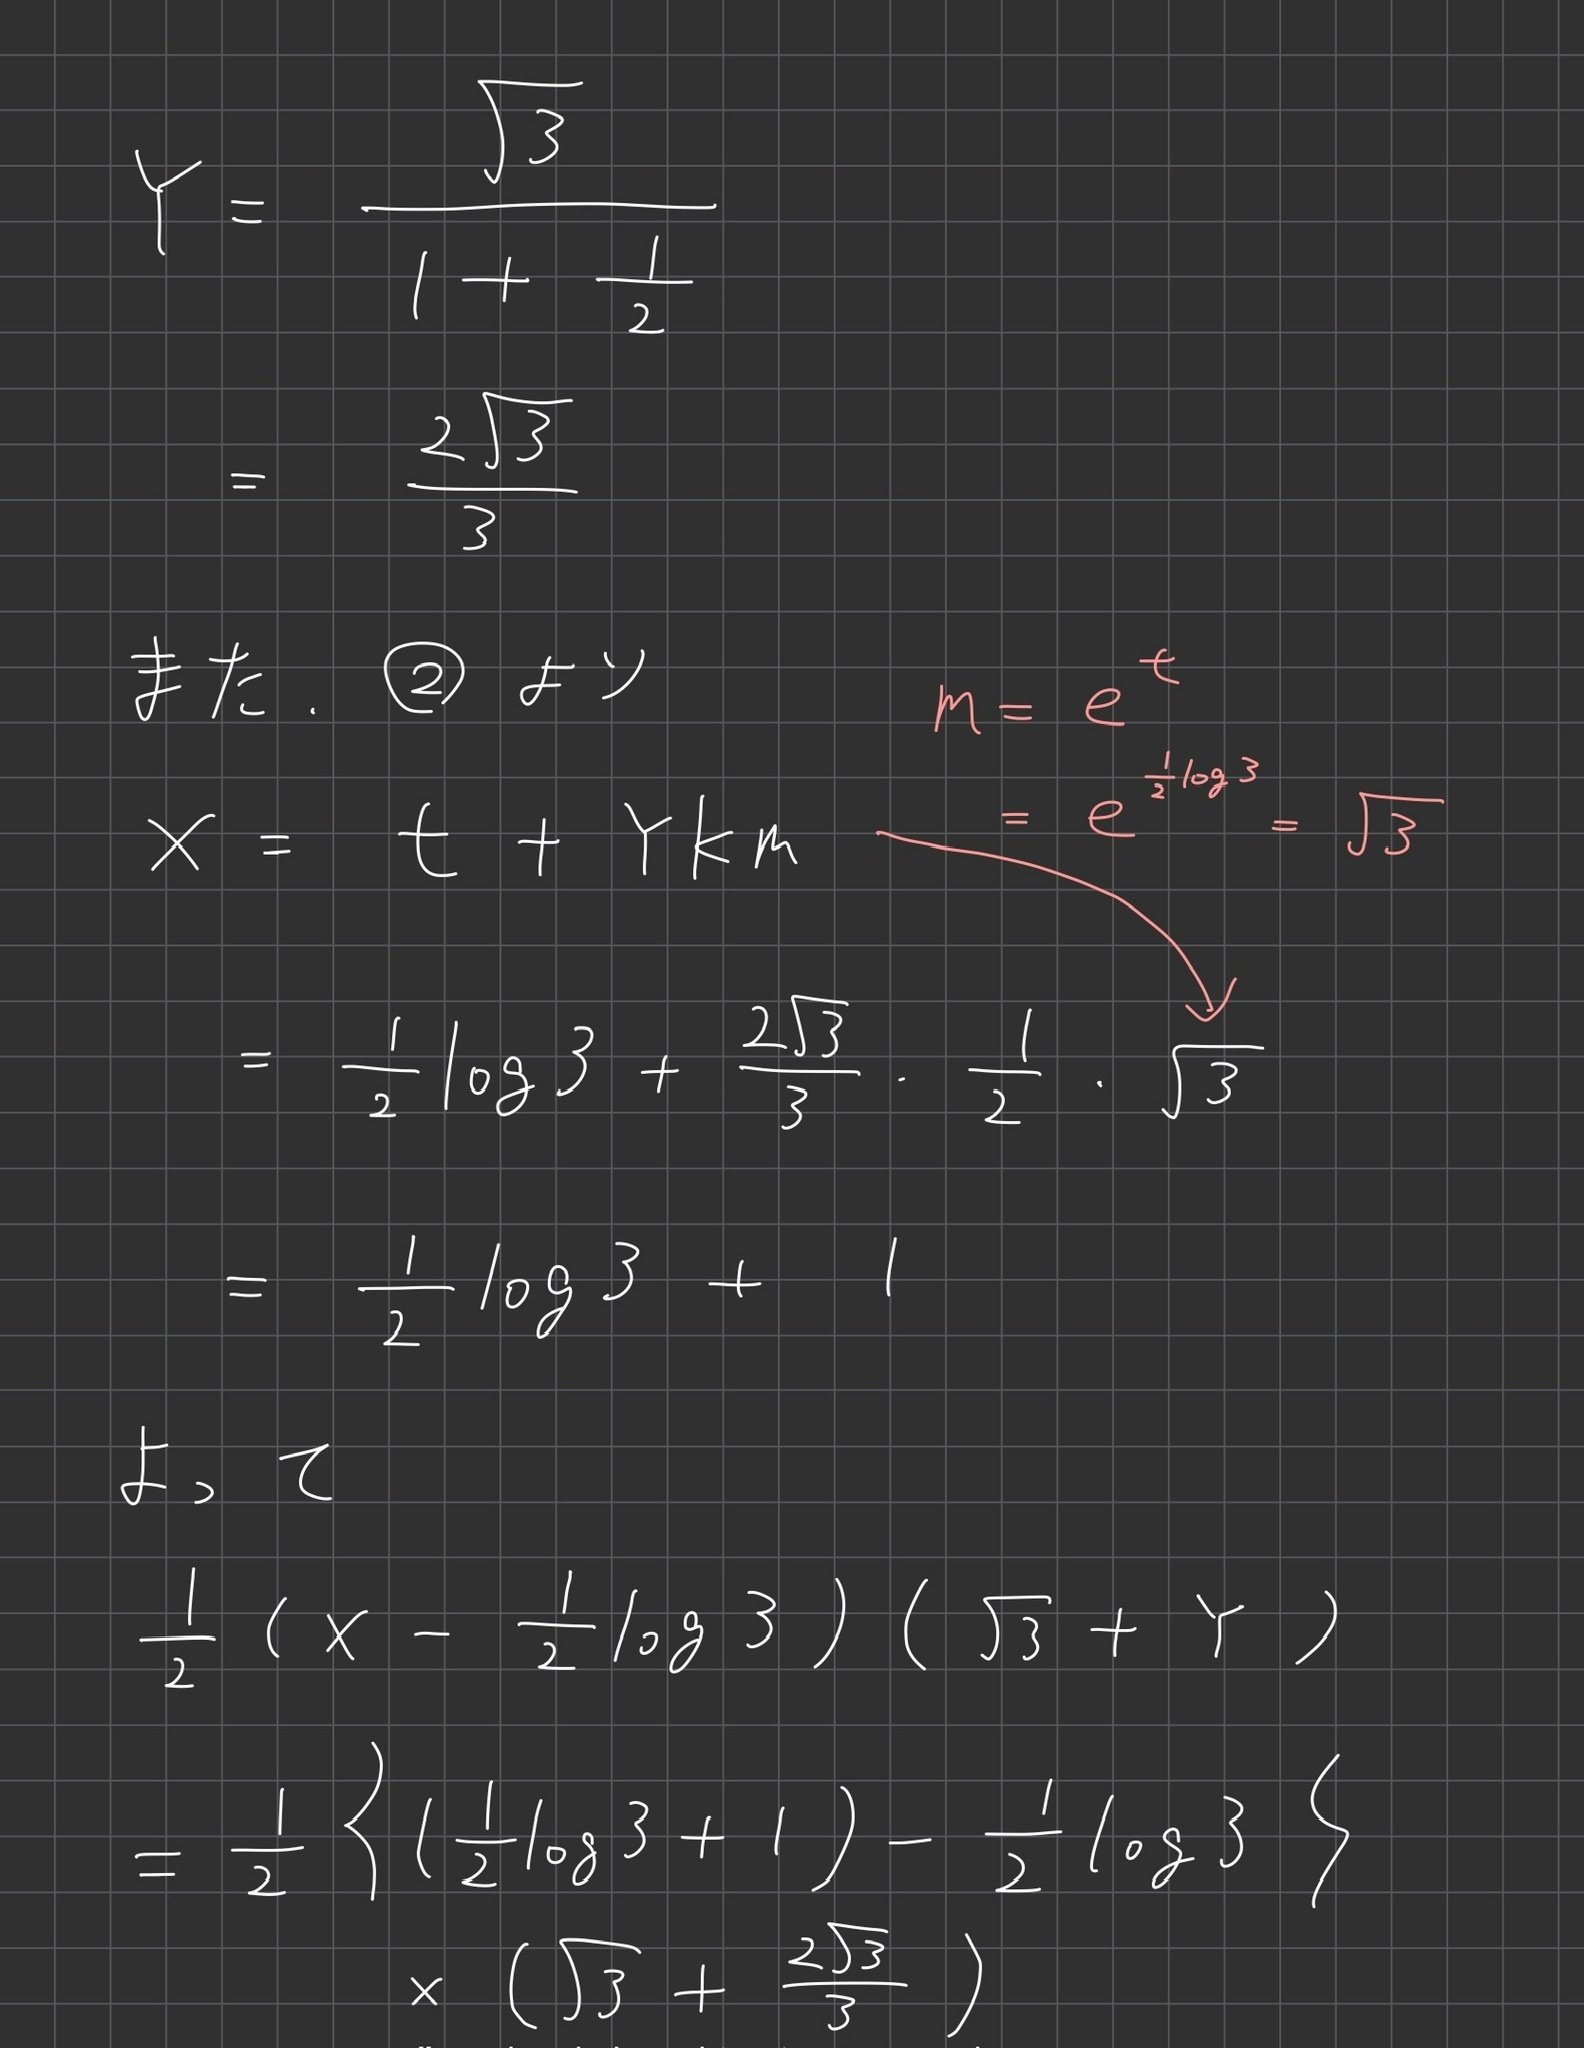 Y = √3 / (1 + 1/2)
= 2√3 / 3
また. ② より
m = e^t
= e^(1/2 log 3) = √3
X = t + Y k m
= 1/2 log 3 + 2√3/3 · 1/2 · √3
= 1/2 log 3 + 1
よって
1/2 (X - 1/2 log 3) (√3 + Y)
= 1/2 { (1/2 log 3 + 1) - 1/2 log 3 }
× (√3 + 2√3/3)